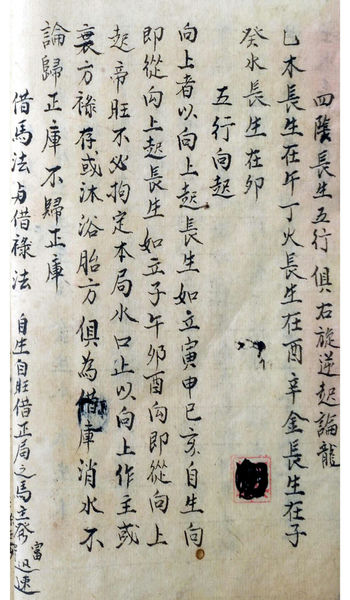 四陰長生五行俱右旋逆起論龍
乙木長生在午丁火長生在酉辛金長生在子
癸水長生在卯
五行向起
向上者以向上起長生如立寅申巳亥自生向
即從向上起長生如立子午卯酉向即從向上
起帝旺不必拘定本局水口止以向上作主或
衰方祿存或沐浴胎方俱為借庫消水不
論歸正庫不歸正庫
借馬法与借祿法 自生自旺借正局之馬主發富迅速